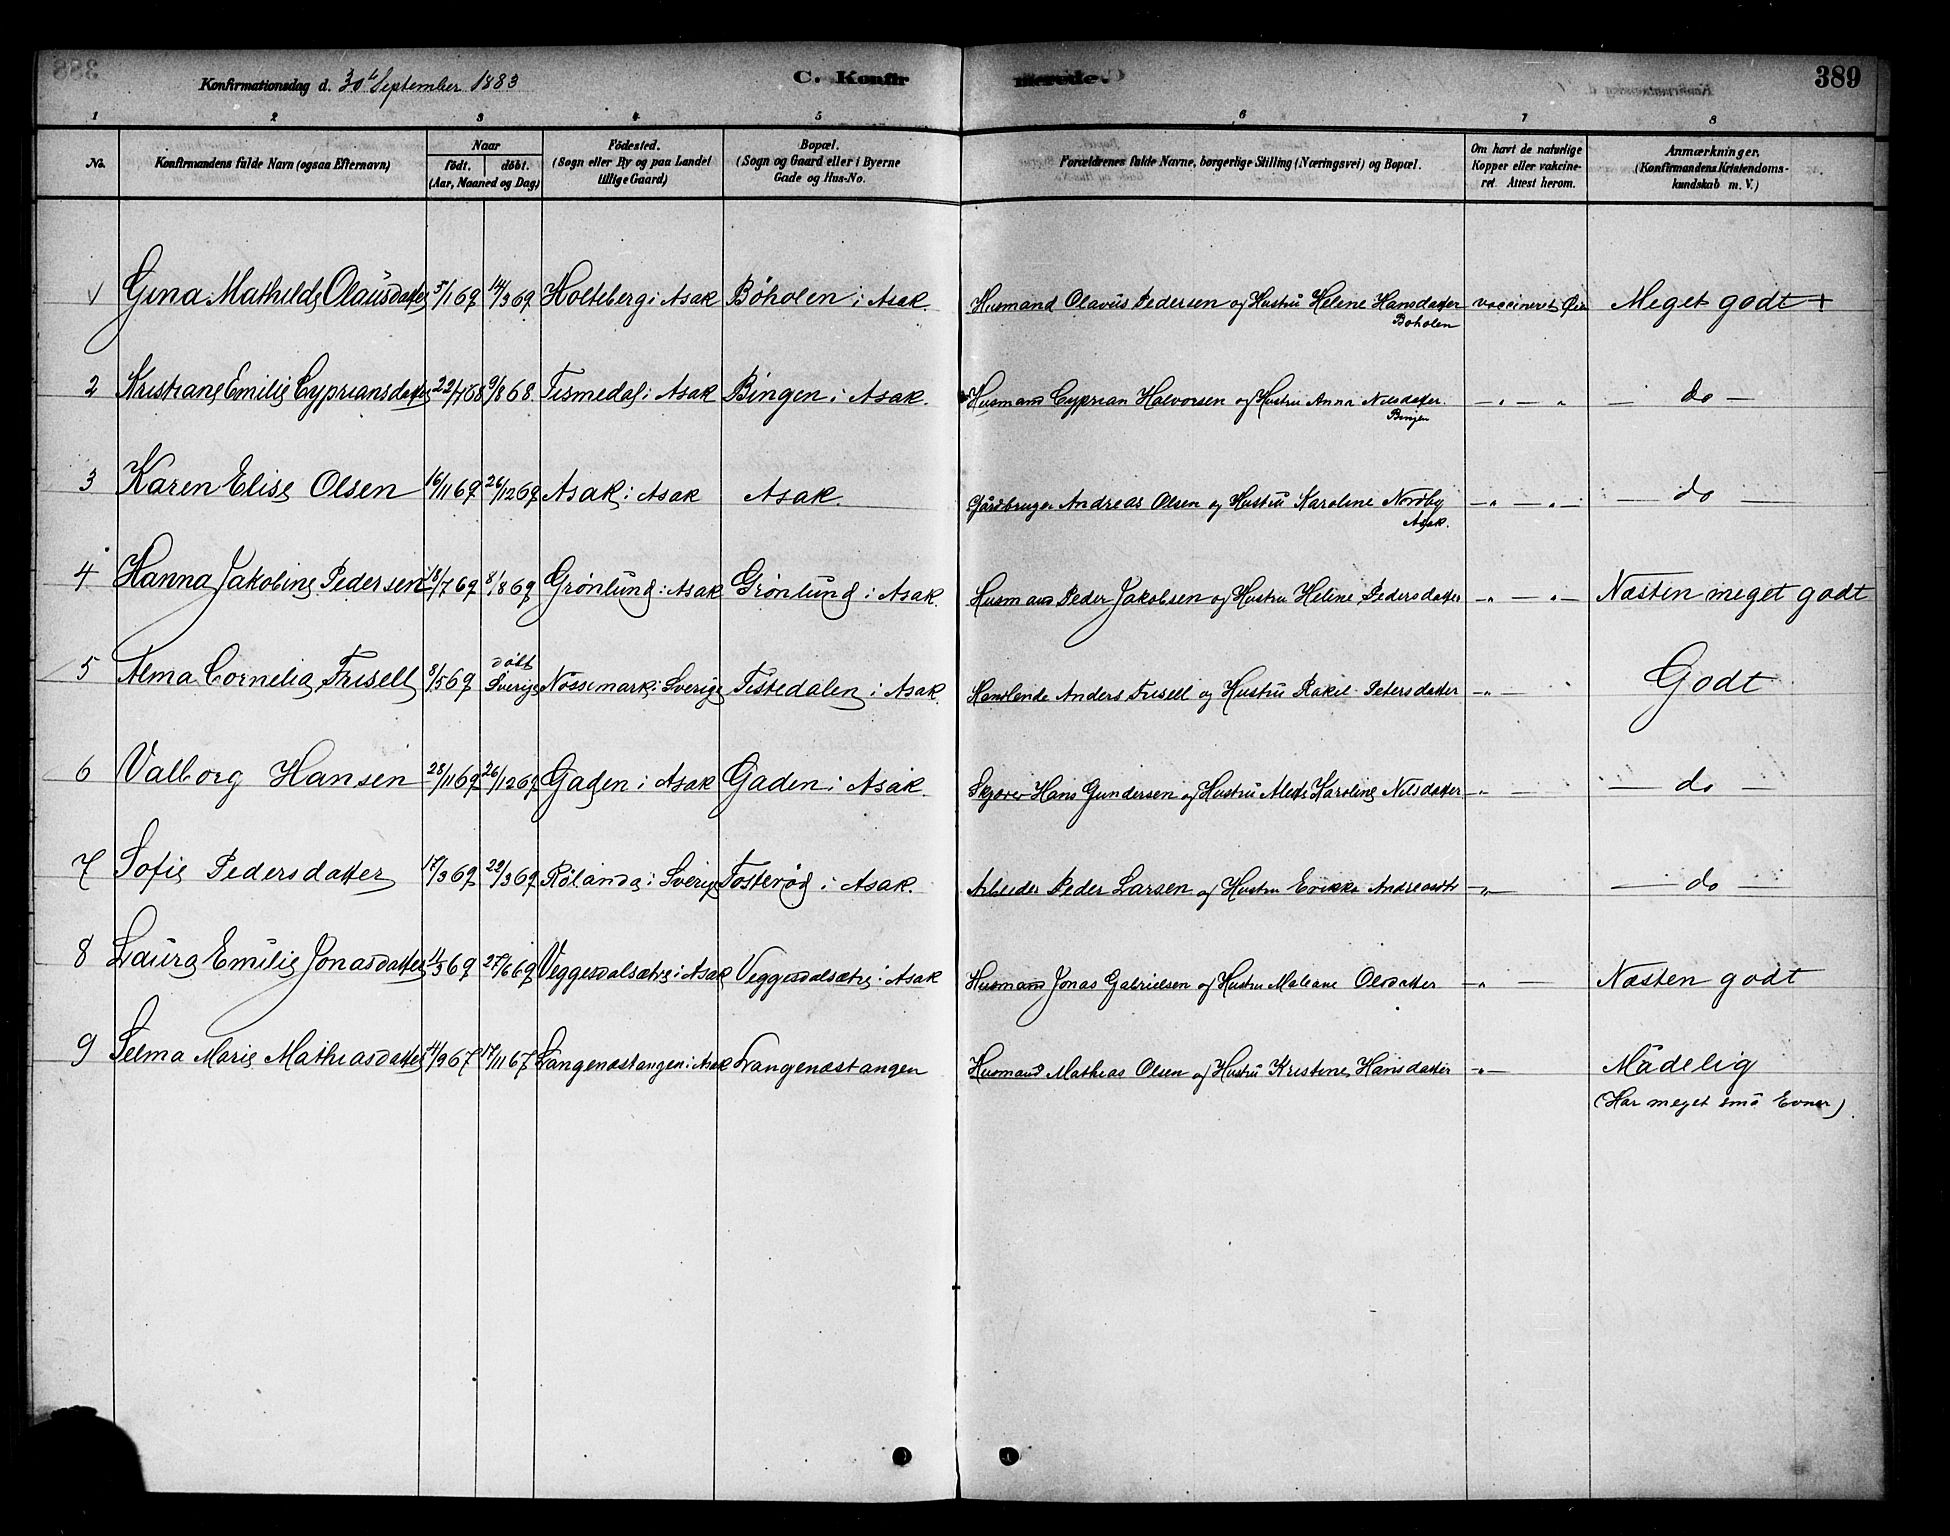 Konfirmationsdag d. 30te September 1883 C. Konfirmerede. 389
1 2 3 4 5 6 7 8
No. Konfirmandens fulde Navn (ogsaa Efternavn) Naar födt. döbt. (Aar, Maaned og Dag) Födested. (Sogn eller By og paa Landet tillige Gaard) Bopæl. (Sogn og Gaard eller i Byerne Gade og Hus-No. Forældrenes fulde Navne, borgerlige Stilling (Næringsvei) og Bopæl. Om havt de naturlige Kopper eller vakcineret. Attest herom. Anmærkninger, (Konfirmandens Kristendomskundskab m. V.)
1 Gina Mathilde Olausdatter 5/1 69 14/3 69 Holteberg i Asak Bøholen i Asak. Husmand Olavus Pedersen og Hustru Helene Hansdatter vaccineret Meget godt +
Boholen
2 Kristiane Emilie Cypriansdatter 22/7 68 9/8 68 Tismedal i Asak Bingen i Asak. Husmand Cyprian Halvorsen og Hustru Anna Nilsdatter. — " — " — do —
Bingen
3 Karen Elise Olsen 16/11 69 26/12 69 Asak i Asak Asak. Gårdbruger Andreas Olsen og Hustru Karoline Nordby — " — " — — do —
Asak.
4 Hanna Jakobine Pedersen 18/7 69 8/8 69 Grönlund i Asak Grönlund i Asak. Husmand Peder Jakobsen og Hustru Helene Pedersdatter — " — " — Næsten meget godt
5 Alma Cornelia Frisell 8/5 69 døbt Sverige Nössemark i Sverige Tistedalen i Asak. Handlende Anders Frisell og Hustru Rakel Petersdatter — " — Godt
6 Valborg Hansen 28/11 69 26/12 69 Gaden i Asak Gaden i Asak. Hans Gundersen og Hustru Karoline Nilsdatter — " — — do —
7 Sofie Pedersdatter 17/3 69 22/3 69 Rölanda i Sverige Tosterød i Asak. Arbeider Peder Larsen og Hustru Erikka — " — — do —
8 Laura Emilie Jonasdatter 11/3 69 27/6 69 Veggesdalsætre i Asak Veggesdalsætre i Asak Husmand Jonas Gabrielsen og Hustru Maleane Olsdatter — " — Næsten godt
9 Selma Marie Mathiasdatter 4/9 67 17/11 67 Langenæstangen i Asak Langenæstangen Husmand Mathias Olsen og Hustru Kristine Hansdatter — " — Mådelig
(Har meget små Evner)